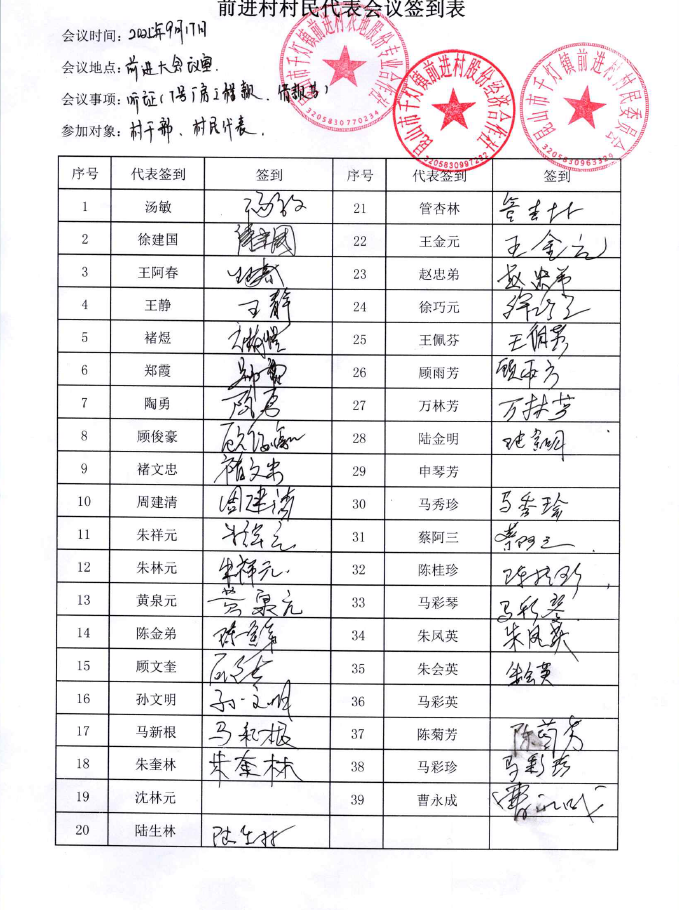 前进村村民代表会议签到表
会议时间：2021年9月17日
会议地点：前进大会议室
会议事项：听证（7号厂房工程款、借款等）
参加对象：村干部、村民代表.
昆山市千灯镇前进村农地股份专业合作社
3205830770234
昆山市千灯镇前进村股份经济合作社
昆山市千灯镇前进村村民委员会
序号 代表签到 签到 序号 代表签到 签到
1 汤敏 汤敏 21 管杏林 管杏林
2 徐建国 徐建国 22 王金元 王金元
3 王阿春 王阿春 23 赵忠弟 赵忠弟
4 王静 王静 24 徐巧元 徐巧元
5 褚煜 褚煜 25 王佩芬 王佩芬
6 郑霞 郑霞 26 顾雨芳 顾雨方
7 陶勇 陶勇 27 万林芳 万林芳
8 顾俊豪 顾俊豪 28 陆金明 陆金明
9 褚文忠 褚文忠 29 申琴芳
10 周建清 周建清 30 马秀珍 马秀珍
11 朱祥元 朱祥元 31 蔡阿三 蔡阿三
12 朱林元 朱林元 32 陈桂珍 陈桂珍
13 黄泉元 黄泉元 33 马彩琴 马彩琴
14 陈金弟 陈金弟 34 朱凤英 朱凤英
15 顾文奎 35 朱会英 朱会英
16 孙文明 孙文明 36 马彩英
17 马新根 马新根 37 陈菊芳 陈菊芳
18 朱奎林 朱奎林 38 马彩珍 马彩珍
19 沈林元 39 曹永成 曹永成
20 陆生林 陆生林